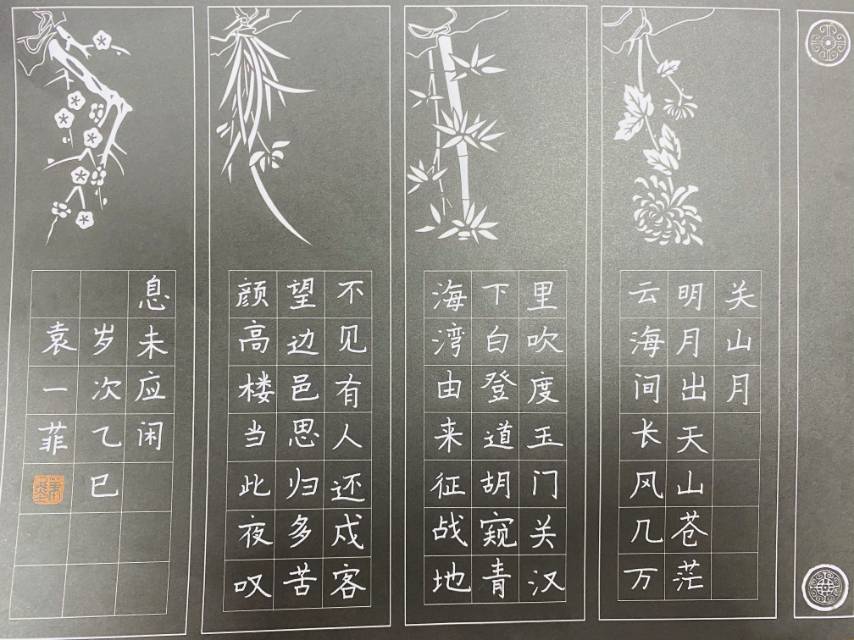 关山月
明月出天山苍茫
云海间长风几万
里吹度玉门关汉
下白登道胡窥青
海湾由来征战地
不见有人还戍客
望边邑思归多苦
颜高楼当此夜叹
息未应闲
岁次乙巳
袁一菲